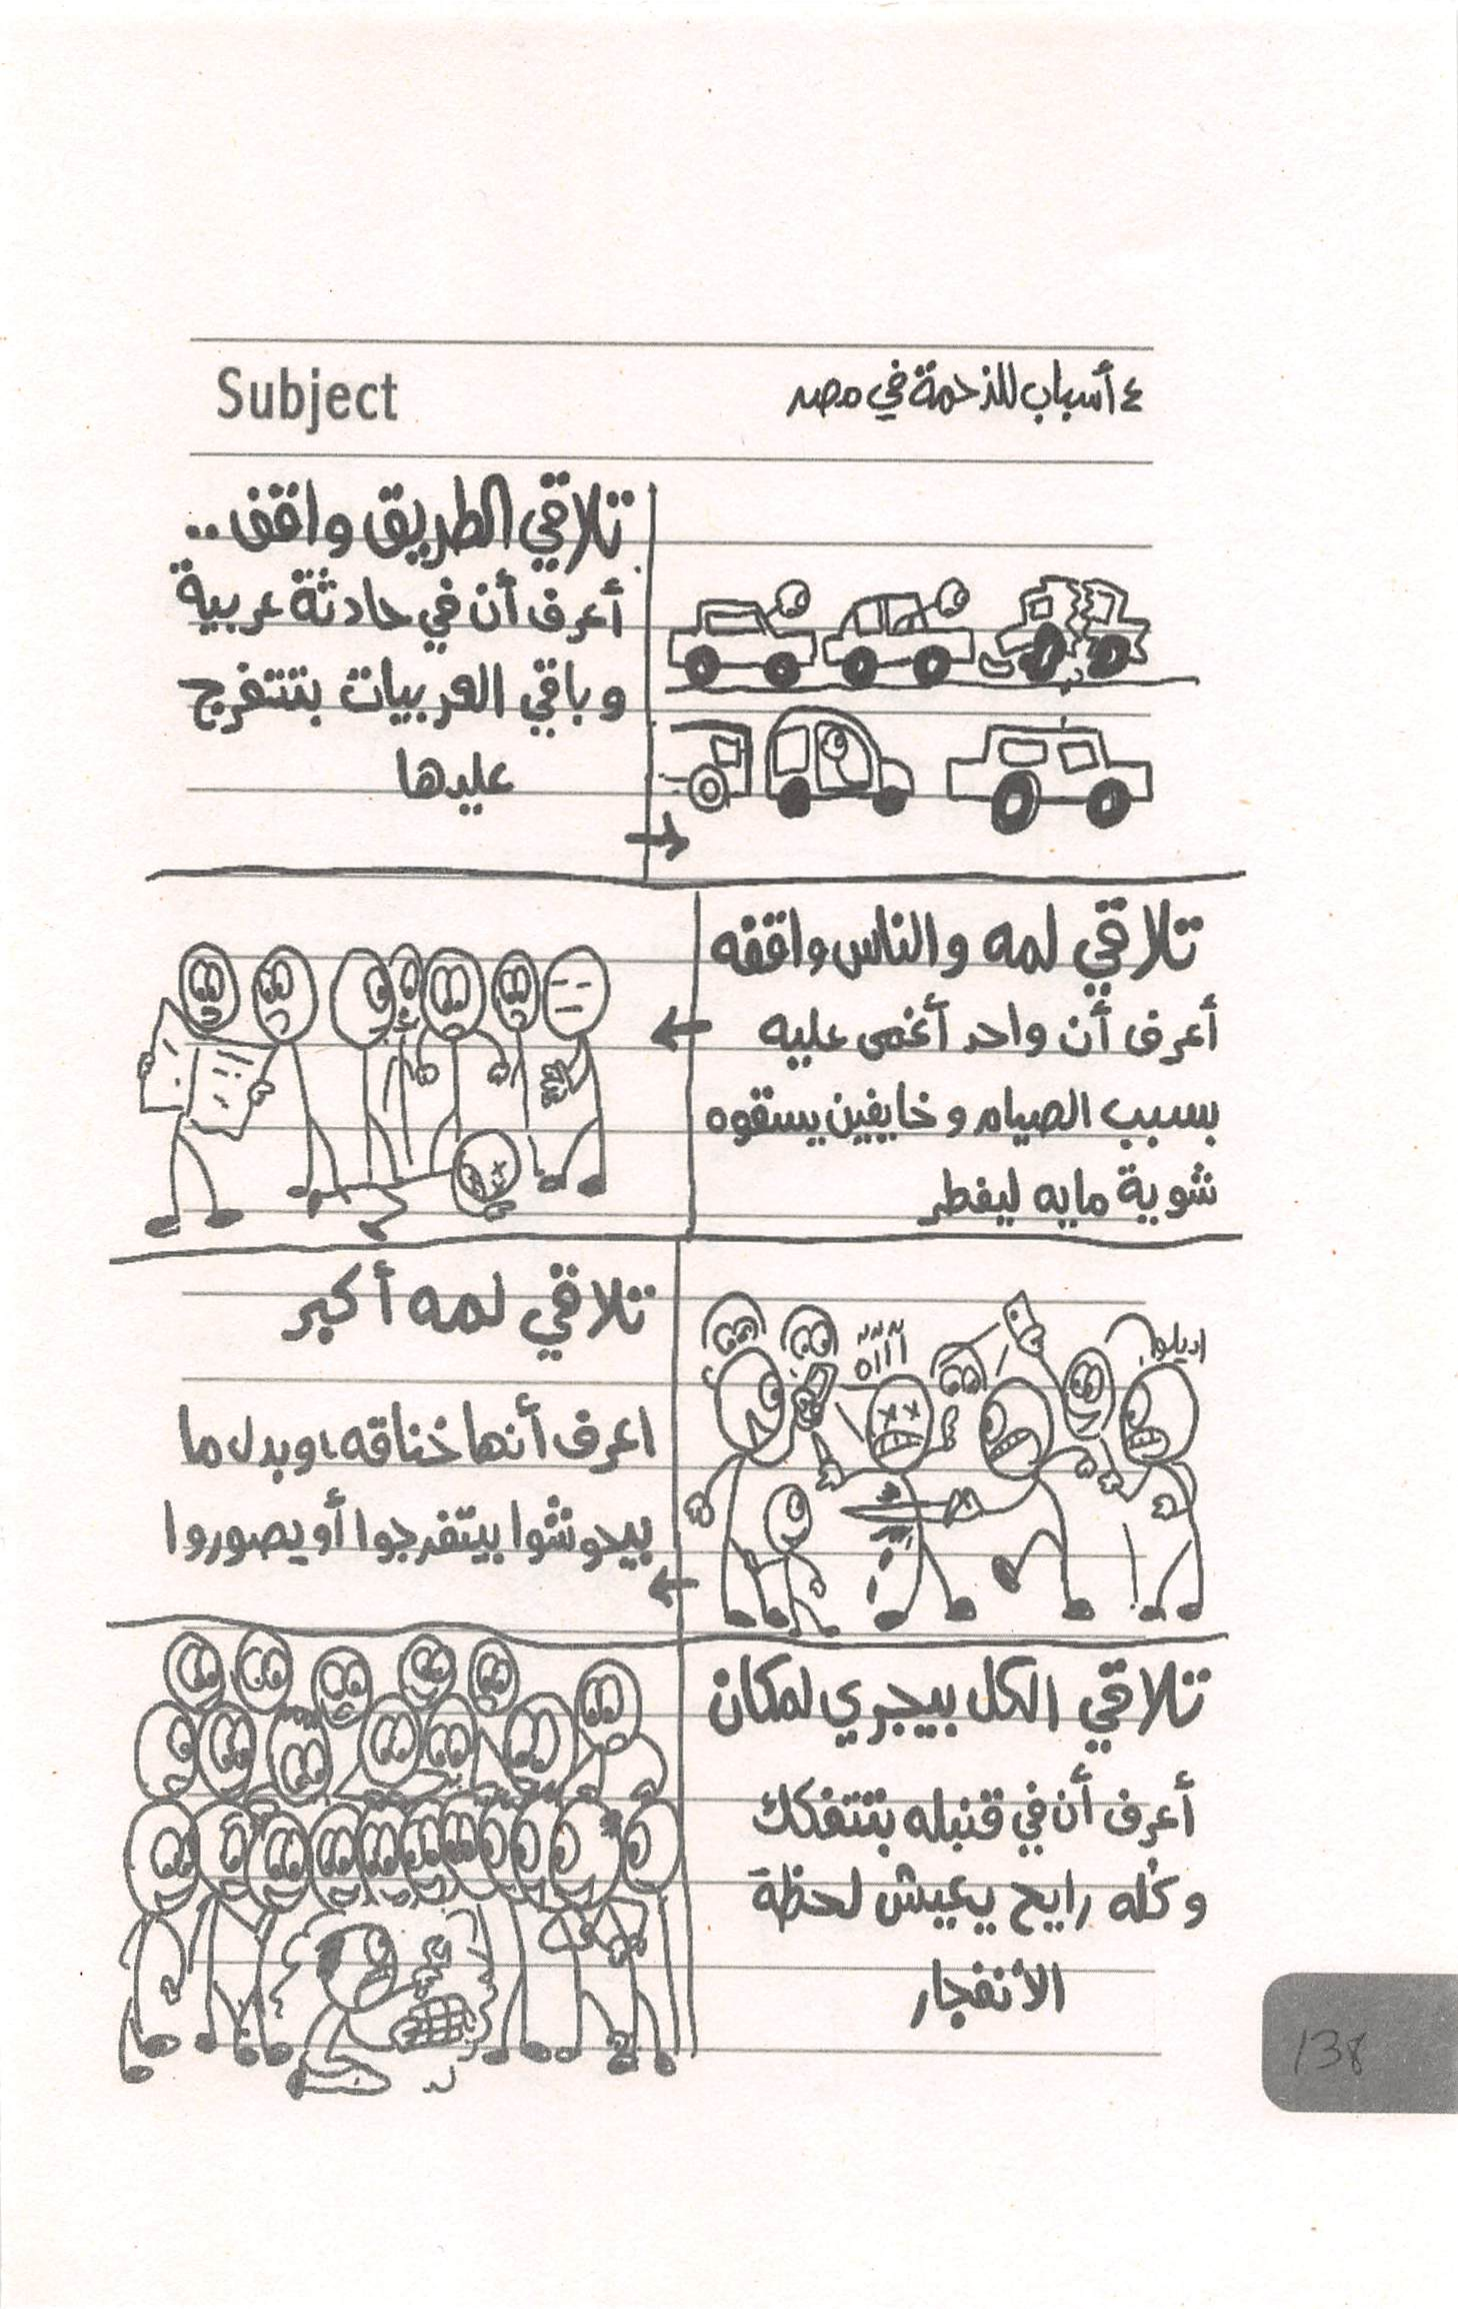 Subject
٤ أسباب للزحمة في مصر
تلاقي الطريق واقف..
أعرف أن في حادثة عربية
و باقي العربيات بتتفرج
عليها
تلاقي لمه والناس واقفه
أعرف أن واحد أغمى عليه
بسبب الصيام و خايفين يسقوه
شوية مايه ليفطر
تلاقي لمه أكبر
اعرف أنها خناقه، وبدل ما
بيحوشوا بيتفرجوا أو يصوروا
آآآه
اديلوا
تلاقي الكل بيجري لمكان
أعرف أن في قنبله بتتفكك
وكله رايح يعيش لحظة
الأنفجار
138